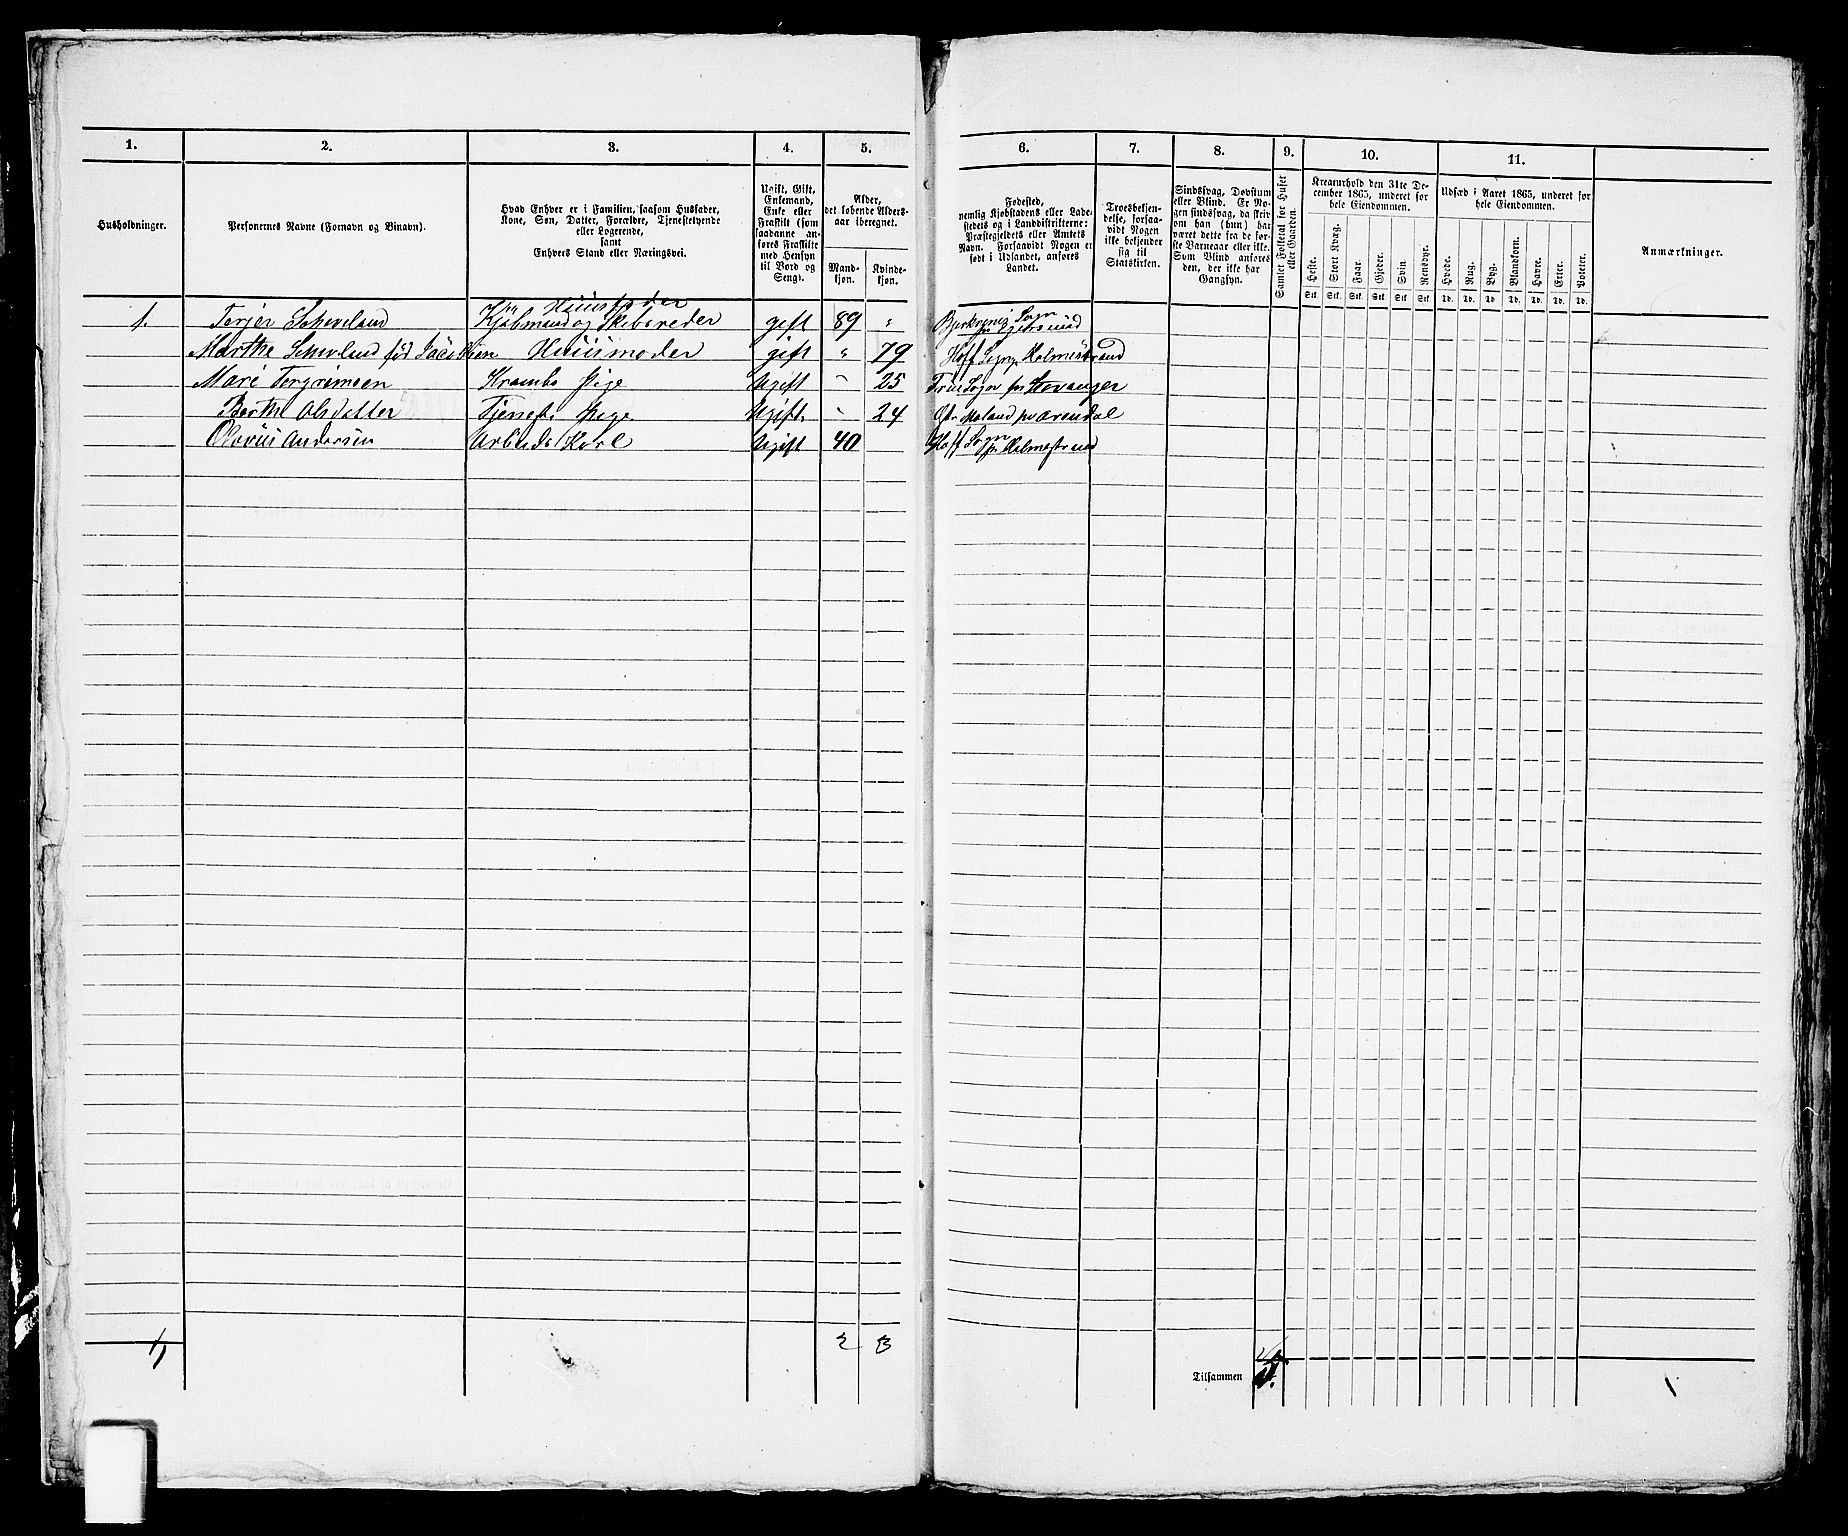 1. 2. 3. 4. 5. 6. 7. 8. 9. 10. 11.
Husholdninger.
Personernes Navne (Fornavn og Binavn).
Hvad Enhver er i Familien, saasom Husfader,
Kone, Søn, Datter, Forældre, Tjenestetyende
eller Logerende,
samt
Enhvers Stand eller Næringsvei.
Ugift, Gift,
Enkemand,
Enke eller
Fraskilt (som
saadanne an-
føres Fraskilte
med Hensyn
til Bord og
Seng).
Alder,
det løbende Alders-
aar iberegnet.
Mand-
kjøn.
Kvinde-
kjøn.
Fødested,
nemlig Kjøbstadens eller Lade-
stedets og i Landdistrikterne:
Præstegjeldets eller Amtets
Navn. Forsaavidt Nogen er
født i Udlandet, anføres
Landet.
Troesbekjen-
delse, forsaa-
vidt Nogen
ikke bekjender
sig til
Statskirken.
Sindssvag, Døvstum
eller Blind. Er No-
gen sindssvag, da skriv
om han (hun) har
været dette fra de før-
ste Barneaar eller ikke.
Som Blind anføres
den, der ikke har
Gangsyn.
Samlet Folketal for Huset
eller Gaarden.
Kreaturhold den 31te De-
cember 1865, underet for
hele Eiendommen.
Heste. Stort Kvæg. Faar. Gjeder. Svin. Rensdyr.
Stk. Stk. Stk. Stk. Stk. Stk.
Udsæd i Aaret 1865, underet for
hele Eiendommen.
Hvede. Rug. Byg. Blandkorn. Havre. Erter. Poteter.
Td. Td. Td. Td. Td. Td. Td.
Anmærkninger.
Huusfader
1. Terjer Scheveland Kjøbmand og Skibsreder gift 89 " Sogn
Marthe Huusmoder gift " 79 Hoff Sogn Holmestrand
Mari Torgrimsen Krambo Pige Ugift " 25 Sogn Stavanger
Berthe Olsdatter Tjeneste Pige Ugift " 24 Moland Arendal
Andersen Arbeids Karl Ugift 40 Hoff Sogn Holmestrand
1 2 3
Tilsammen 5.